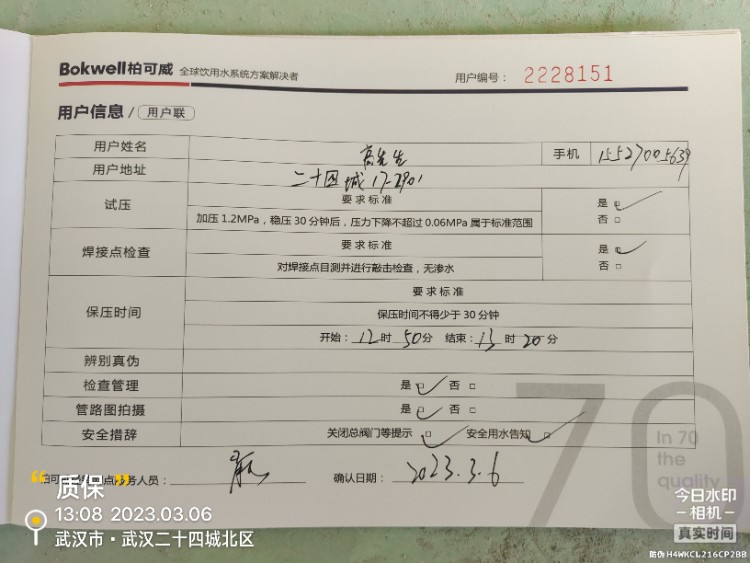 Bokwell柏可威 全球饮用水系统方案解决者 用户编号： 2228151
用户信息 / 用户联
用户姓名 高先生 手机 15527005639
用户地址 二十四城 17-2901
试压 要求标准 是
加压 1.2MPa，稳压 30 分钟后，压力下降不超过 0.06MPa 属于标准范围 否
焊接点检查 要求标准 是
对焊接点目测并进行敲击检查，无渗水 否
保压时间 要求标准
保压时间不得少于 30 分钟
开始：12 时 50 分 结束：13 时 20 分
辨别真伪
检查管理 是 否
管路图拍摄 是 否
安全措辞 关闭总阀门等提示 安全用水告知
务人员： 确认日期： 2023.3.6
70
In 70
the
quality
“质保”
13:08 2023.03.06
武汉市·武汉二十四城北区
今日水印
相机
真实时间
防伪 H4WKCL216CP2BB